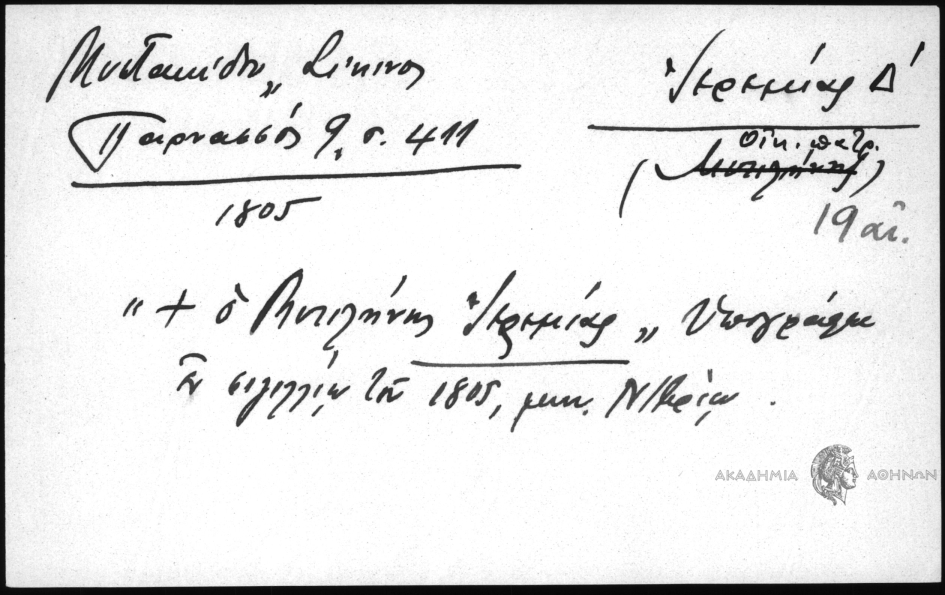 Μυστακίδου „ Σίκινος
Παρνασσός 9, σ. 411
1805
Ἱερεμίας Δ΄
οἰκ. πατρ.
(Μυτιλήνης)
19 αἰ.
" + ὁ Μυτιλήνης Ἱερεμίας „ ὑπογράφει
ἐν σιγιλλίῳ τοῦ 1805, μην. Ν/βρίῳ.
ΑΚΑΔΗΜΙΑ ΑΘΗΝΩΝ